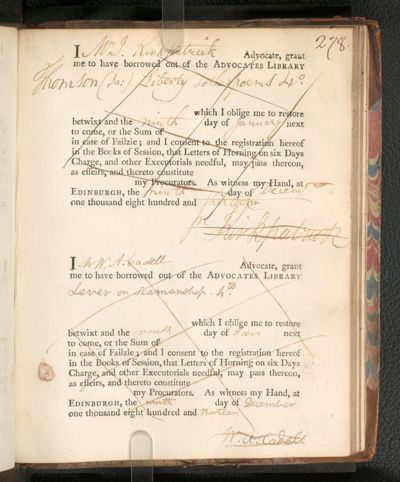 278.
I Mr J. Kirkpatrick Advocate, grant
me to have borrowed out of the ADVOCATES LIBRARY
Thomson (Ja:) Liberty poems 4o.
which I oblige me to restore
betwixt and the ninth day of January next
to come, or the Sum of
in case of Failzie; and I consent to the registration hereof
in the Books of Session, that Letters of Horning on six Days
Charge, and other Executorials needful, may pass thereon,
as effeirs, and thereto constitute
my Procurators. As witness my Hand, at
EDINBURGH, the ninth day of Decem
one thousand eight hundred and thirteen
Kirkpatrick
I W. A. Cadell Advocate, grant
me to have borrowed out of the ADVOCATES LIBRARY
Lever on Seamanship. 4to
which I oblige me to restore
betwixt and the ninth day of next
to come, or the Sum of
in case of Failzie; and I consent to the registration hereof
in the Books of Session, that Letters of Horning on six Days
Charge, and other Executorials needful, may pass thereon,
as effeirs, and thereto constitute
my Procurators. As witness my Hand, at
EDINBURGH, the ninth day of December
one thousand eight hundred and
W. A. Cadell